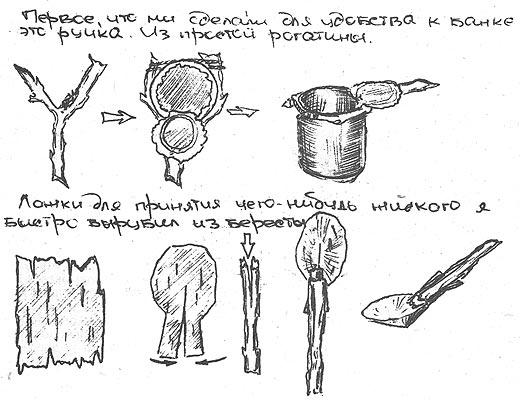 Первое, что мы сделали для удобства к банке
это ручка. Из простой рогатины.
Ложки для принятия чего-нибудь жидкого я
быстро вырубил из бересты